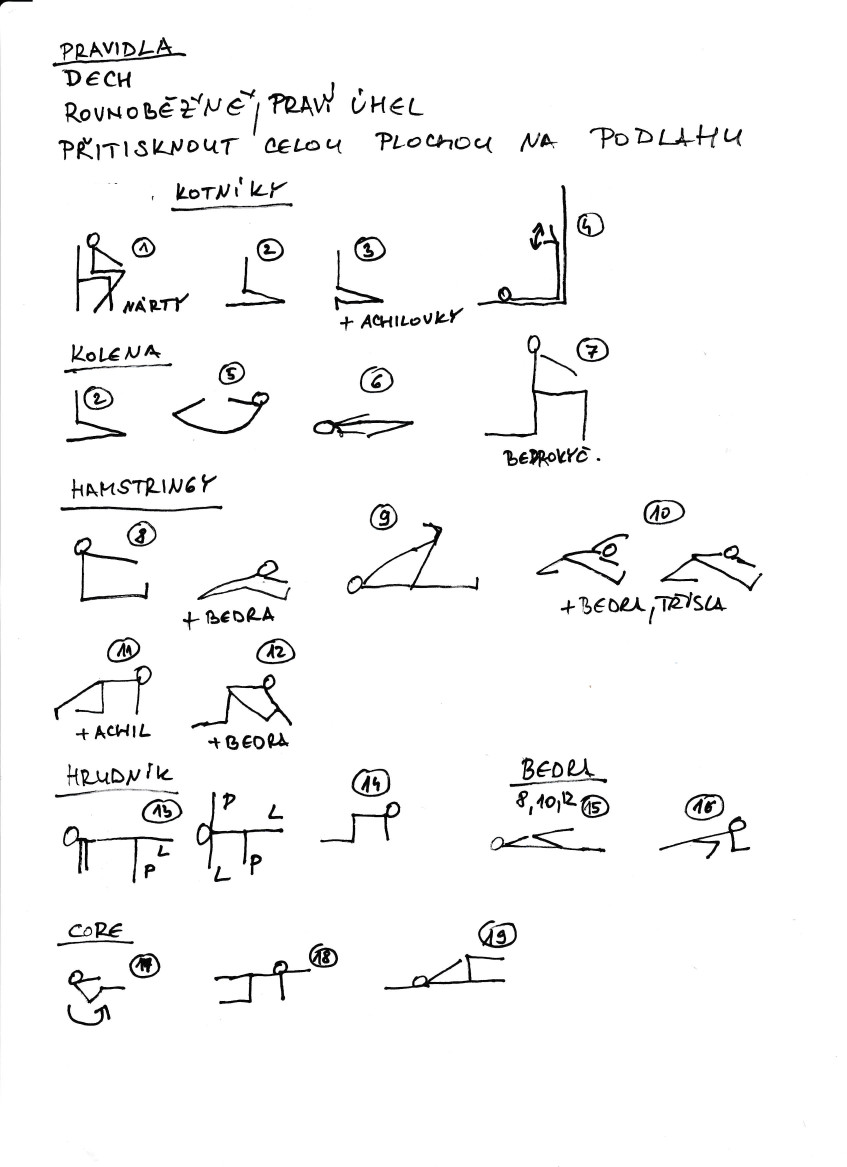 PRAVIDLA
DECH
ROVNOBĚŽNĚ, PRAVÝ ÚHEL
PŘITISKNOUT CELOU PLOCHOU NA PODLAHU
KOTNÍKY
1 2 3 4
NÁRTY
+ ACHILOVKY
KOLENA
2 5 6 7
BEDROKYČ.
HAMSTRINGY
8 9 10
+ BEDRA
+ BEDRA, TŘÍSLA
11 12
+ ACHIL
+ BEDRA
HRUDNÍK
BEDRA
8, 10, 12 15 16
13 14
P L
L P
L P
CORE
17 18 19